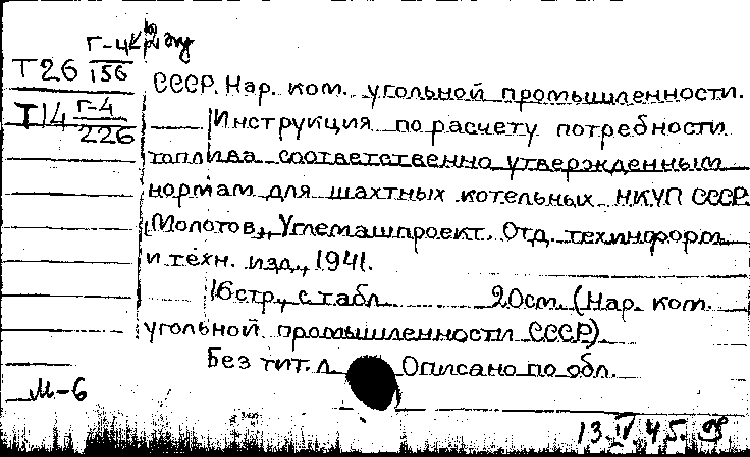 Г-4
Т26 156
Т14 Г-4
226
СССР. Нар. ком. угольной промышленности.
Инструкция по расчету потребности
топлива соответственно утвержденным
нормам для шахтных котельных НКУП СССР.
[Молотов], Углемашпроект. Отд. техинформ.
и техн. изд., 1941.
16 стр., с табл. 20см. (Нар. ком.
угольной промышленности СССР).
Без тит. л. Описано по обл.
М-6
13.IV.45.